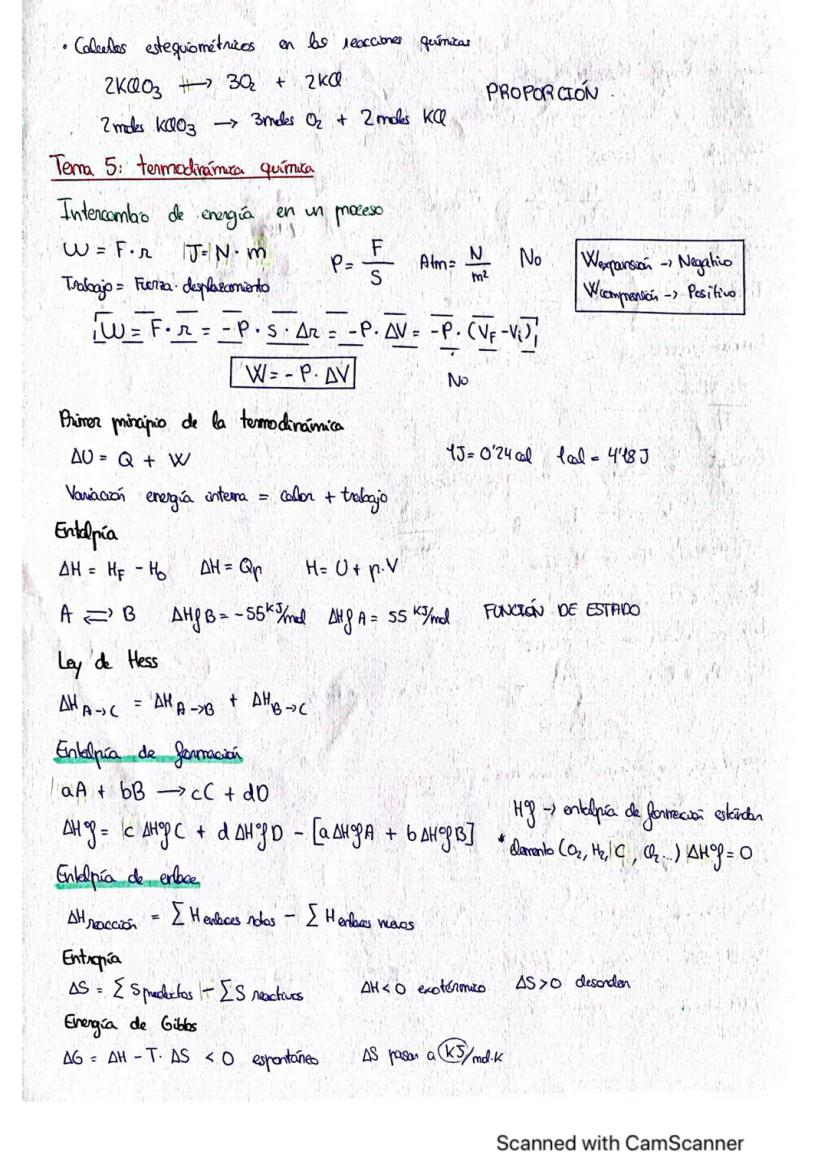 • Calculos estequiométricos en las reacciones químicas
2KClO3 → 3O2 + 2KCl
PROPORCIÓN
2 moles KClO3 → 3 moles O2 + 2 moles KCl
Tema 5: termodinámica química
Intercambio de energía en un proceso
W = F · r J = N · m P = F/S Atm = N/m² No
Wexpansión -> Negativo
Trabajo = Fuerza · desplazamiento
Wcompresión -> Positivo
W = F · r = -P · S · Δr = -P · ΔV = -P · (VF - Vi)
W = - P · ΔV
No
Primer principio de la termodinámica
ΔU = Q + W 1J = 0'24 cal 1cal = 4'18 J
Variación energía interna = calor + trabajo
Entalpía
ΔH = HF - H0 ΔH = Qp H = U + p·V
A ⇌ B ΔHf B = -55 KJ/mol ΔHf A = 55 KJ/mol FUNCIÓN DE ESTADO
Ley de Hess
ΔH A->C = ΔH A->B + ΔH B->C
Entalpía de formación
aA + bB → cC + dD
Hºf -> entalpía de formación estándar
ΔHºf = c ΔHºf C + d ΔHºf D - [a ΔHºf A + b ΔHºf B]
* elemento (O2, H2, C, Cl2...) ΔHºf = 0
Entalpía de enlace
ΔH reacción = Σ H enlaces rotos - Σ H enlaces nuevos
Entropía
ΔS = Σ S productos - Σ S reactivos ΔH < 0 exotérmico ΔS > 0 desorden
Energía de Gibbs
ΔG = ΔH - T · ΔS < 0 espontáneo ΔS pasar a KJ/mol·K
Scanned with CamScanner